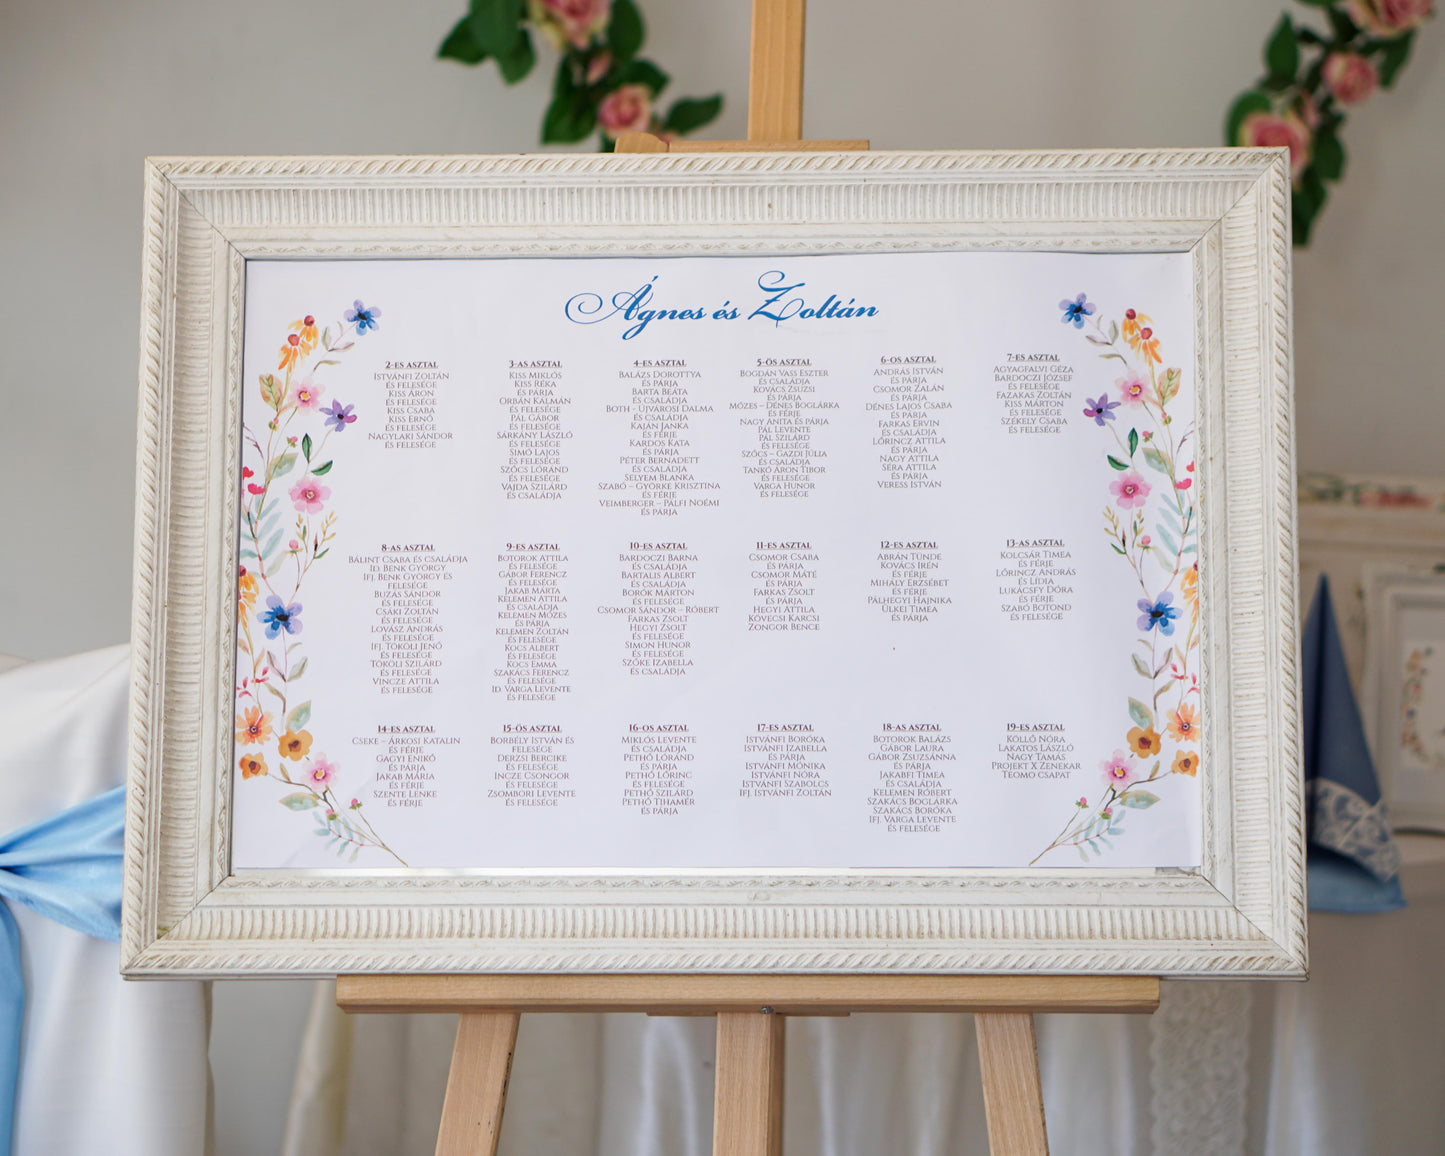 Ágnes és Zoltán
2-es asztal
Istvánfi Zoltán
és felesége
Kiss Áron
és felesége
Kiss Csaba
Kiss Ernő
és felesége
Nagylaki Sándor
és felesége
3-as asztal
Kiss Miklós
Kiss Réka
és párja
Orbán Kálmán
és felesége
Pál Gábor
és felesége
Sárkány László
és felesége
Simó Lajos
és felesége
Szőcs Lóránd
és felesége
Vajda Szilárd
és családja
4-es asztal
Balázs Dorottya
és párja
Barta Beáta
és családja
Both - Újvárosi Dalma
és családja
Kaján Janka
és férje
Kardos Kata
és párja
Péter Bernadett
és családja
Selyem Blanka
Szabó – Györke Krisztina
és férje
Veimberger – Pálfi Noémi
és párja
5-ös asztal
Bogdán Vass Eszter
és családja
Kovács Zsuzsi
és párja
Mózes – Dénes Boglárka
és férje
Nagy Anita és párja
Pál Levente
Pál Szilárd
és felesége
Szőcs – Gazdi Júlia
és családja
Tankó Áron Tibor
és felesége
Varga Hunor
és felesége
6-os asztal
András István
és párja
Csomor Zalán
és párja
Dénes Lajos Csaba
és párja
Farkas Ervin
és családja
Lőrincz Attila
és párja
Nagy Attila
Séra Attila
és párja
Veress István
7-es asztal
Agyagfalvi Géza
Bardoczi József
és felesége
Fazakas Zoltán
Kiss Márton
és felesége
Székely Csaba
és felesége
8-as asztal
Bálint Csaba és családja
Id. Benk György
Ifj. Benk György és
felesége
Buzás Sándor
és felesége
Csáki Zoltán
és felesége
Lovász András
és felesége
Ifj. Tököli Jenő
és felesége
Tököli Szilárd
és felesége
Vincze Attila
és felesége
9-es asztal
Botorok Attila
és felesége
Gábor Ferencz
és felesége
Jakab Márta
Kelemen Attila
és családja
Kelemen Mózes
és párja
Kelemen Zoltán
és felesége
Kocs Albert
és felesége
Kocs Emma
Szakács Ferencz
és felesége
Id. Varga Levente
és felesége
10-es asztal
Bardoczi Barna
és családja
Bartalis Albert
és családja
Borók Márton
és felesége
Csomor Sándor – Róbert
Farkas Zsolt
Hegyi Zsolt
és felesége
Simon Hunor
és felesége
Szőke Izabella
és családja
11-es asztal
Csomor Csaba
és párja
Csomor Máté
és párja
Farkas Zsolt
és párja
Hegyi Attila
Kövecsi Karcsi
Zongor Bence
12-es asztal
Ábrán Tünde
Kovács Irén
és férje
Mihály Erzsébet
és férje
Pálhegyi Hajnika
Ülkei Timea
és párja
13-as asztal
Kolcsár Timea
és férje
Lőrincz András
és Lídia
Lukácsfy Dóra
és férje
Szabó Botond
és felesége
14-es asztal
Cseke – Árkosi Katalin
és férje
Gagyi Enikő
és párja
Jakab Mária
és férje
Szente Lenke
és férje
15-ös asztal
Borbély István és
felesége
Derzsi Bercike
és felesége
Incze Csongor
és felesége
Zsombori Levente
és felesége
16-os asztal
Miklós Levente
és családja
Pethő Loránd
és párja
Pethő Lőrinc
és felesége
Pethő Szilárd
Pethő Tihamér
és párja
17-es asztal
Istvánfi Boróka
Istvánfi Izabella
és párja
Istvánfi Mónika
Istvánfi Nóra
Istvánfi Szabolcs
Ifj. Istvánfi Zoltán
18-as asztal
Botorok Balázs
Gábor Laura
Gábor Zsuzsánna
és párja
Jakabfi Timea
és családja
Kelemen Róbert
Szakács Boglárka
Szakács Boróka
Ifj. Varga Levente
és felesége
19-es asztal
Köllő Nóra
Lakatos László
Nagy Tamás
Projekt X Zenekar
Teomo csapat